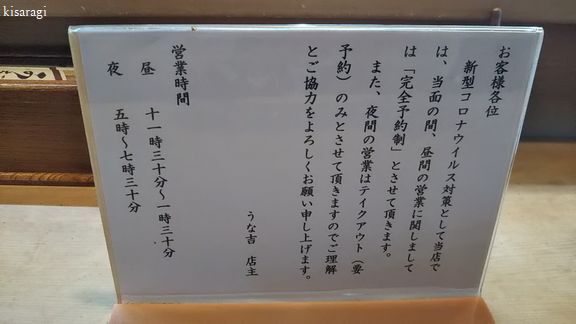 kisaragi
お客様各位
新型コロナウイルス対策として当店で
は、当面の間、昼間の営業に関しまして
は「完全予約制」とさせて頂きます。
また、夜間の営業はテイクアウト（要
予約）のみとさせて頂きますのでご理解
とご協力をよろしくお願い申し上げます。
うな吉 店主
営業時間
昼 十一時三十分～一時三十分
夜 五時～七時三十分